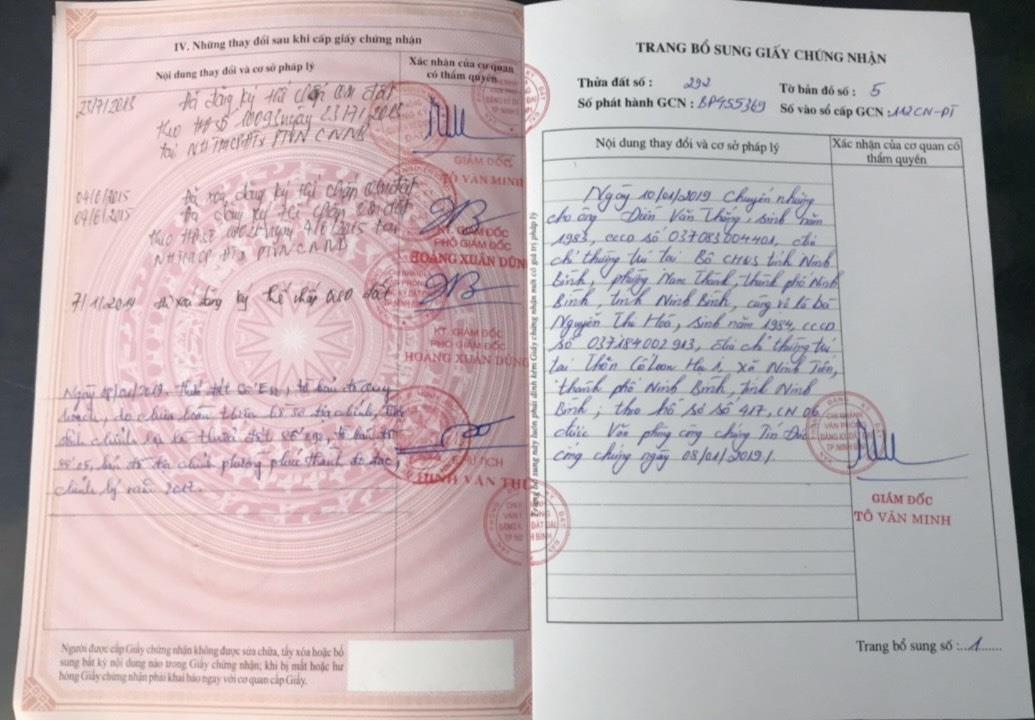 IV. Những thay đổi sau khi cấp giấy chứng nhận
Nội dung thay đổi và cơ sở pháp lý
Xác nhận của cơ quan
có thẩm quyền
23/7/2013 Đã đăng ký thế chấp QSD đất
theo HSSB 1009 ngày 23/7/2013
tại NHTMCP ĐTx PTVN CNNB
GIÁM ĐỐC
TÔ VĂN MINH
04/6/2015 Đã xóa đăng ký thế chấp QSD đất
04/6/2015 Đã đăng ký thế chấp QSD đất
theo HSSB ngày 4/6/2015 tại
NHTMCP ĐTx PTVN CNNB
KT. GIÁM ĐỐC
PHÓ GIÁM ĐỐC
HOÀNG XUÂN DŨNG
7/1/2019 Đã xóa đăng ký thế chấp QSD đất
KT. GIÁM ĐỐC
PHÓ GIÁM ĐỐC
HOÀNG XUÂN DŨNG
Ngày 08/01/2019. Thửa đất số tờ bản đồ quy
hoạch, do chưa hoàn thiện hồ sơ địa chính,
đính chính lại là thửa đất số 292, tờ bản đồ
số 05, bản đồ địa chính phường phúc thành đo đạc,
chỉnh lý năm 2012.
ĐINH VĂN THỨ
Người được cấp Giấy chứng nhận không được sửa chữa, tẩy xóa hoặc bổ
sung bất kỳ nội dung nào trong Giấy chứng nhận; khi bị mất hoặc hư
hỏng Giấy chứng nhận phải khai báo ngay với cơ quan cấp Giấy.
Trang bổ sung này luôn phải đính kèm Giấy chứng nhận mới có giá trị pháp lý
TRANG BỔ SUNG GIẤY CHỨNG NHẬN
Thửa đất số : 292 Tờ bản đồ số : 5
Số phát hành GCN : BP955369 Số vào sổ cấp GCN : 112CN-PT
Nội dung thay đổi và cơ sở pháp lý
Xác nhận của cơ quan có
thẩm quyền
Ngày 10/01/2019 Chuyển nhượng
cho ông Điền Văn Thông, sinh năm
1983, CCCD số 037083004401, địa
chỉ thường trú tại Bộ CHQS tỉnh Ninh
Bình, phường Nam Thành, thành phố Ninh
Bình, tỉnh Ninh Bình, cùng vợ là bà
Nguyễn Thị Hoà, sinh năm 1984, CCCD
số 037184002913, địa chỉ thường trú
tại Thôn Cổ Loan Hạ 1, xã Ninh Tiến,
thành phố Ninh Bình, tỉnh Ninh
Bình; theo hồ sơ số 417.CN.06
được Văn phòng công chứng Tín Đức
công chứng ngày 08/01/2019./.
GIÁM ĐỐC
TÔ VĂN MINH
Trang bổ sung số :...1......